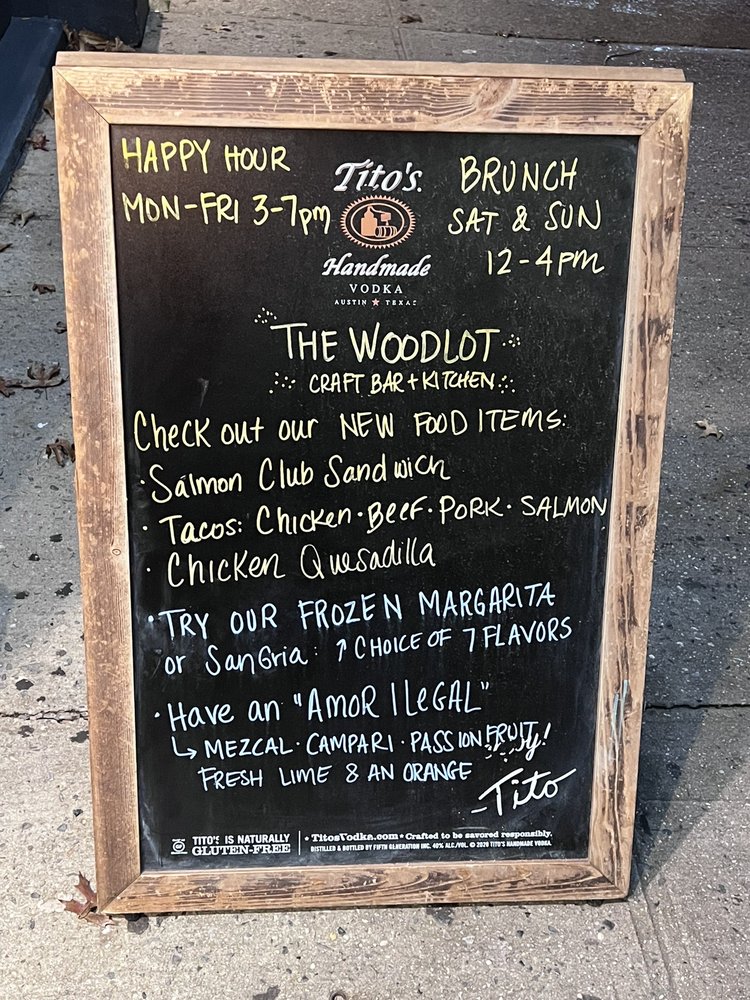 HAPPY HOUR
MON-FRI 3-7pm
Tito's
Handmade
VODKA
AUSTIN ★ TEXAS
BRUNCH
SAT & SUN
12-4pm
THE WOODLOT
CRAFT BAR + KITCHEN
Check out our NEW FOOD ITEMS:
· Salmon Club Sandwich
· Tacos: Chicken · Beef · PORK · SALMON
· Chicken Quesadilla
· TRY OUR FROZEN MARGARITA
or Sangria: ↑ CHOICE OF 7 FLAVORS
· Have an "AMOR ILEGAL"
↳ MEZCAL · CAMPARI · PASSION FRUIT
FRESH LIME & AN ORANGE
-Tito
TITO'S IS NATURALLY
GLUTEN-FREE
• TitosVodka.com • Crafted to be savored responsibly.
DISTILLED & BOTTLED BY FIFTH GENERATION INC. 40% ALC./VOL. © 2020 TITO'S HANDMADE VODKA.